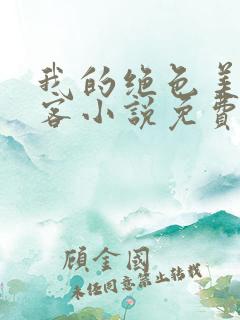 我的绝色美
客小说免费
顾金國
未经同意禁止转载